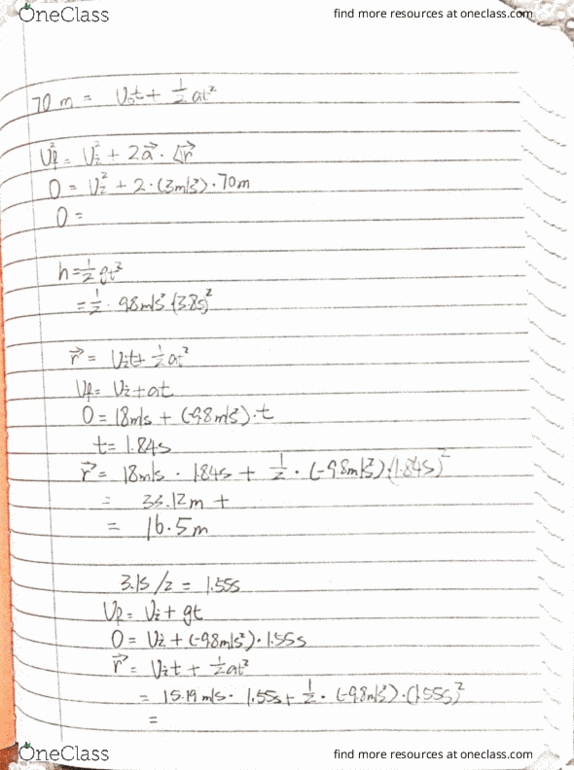 OneClass
find more resources at oneclass.com
70 m = Vit + 1/2 at²
Vf² = Vi² + 2a⃗ · Δr⃗
0 = Vi² + 2 · (3m/s²) · 70m
0 =
h = 1/2 gt²
= 1/2 · 9.8m/s² (3.8s)²
r⃗ = Vit + 1/2 at²
Vf = Vi + at
0 = 18m/s + (-9.8m/s²) · t
t = 1.84s
r⃗ = 18m/s · 1.84s + 1/2 · (-9.8m/s²) · (1.84s)²
= 33.12m +
= 16.5m
3.1s /2 = 1.55s
Vf = Vi + gt
0 = Vi + (-9.8m/s²) · 1.55s
r⃗ = Vit + 1/2 at²
= 15.19m/s · 1.55s + 1/2 · (-9.8m/s²) · (1.55s)²
=
OneClass
find more resources at oneclass.com